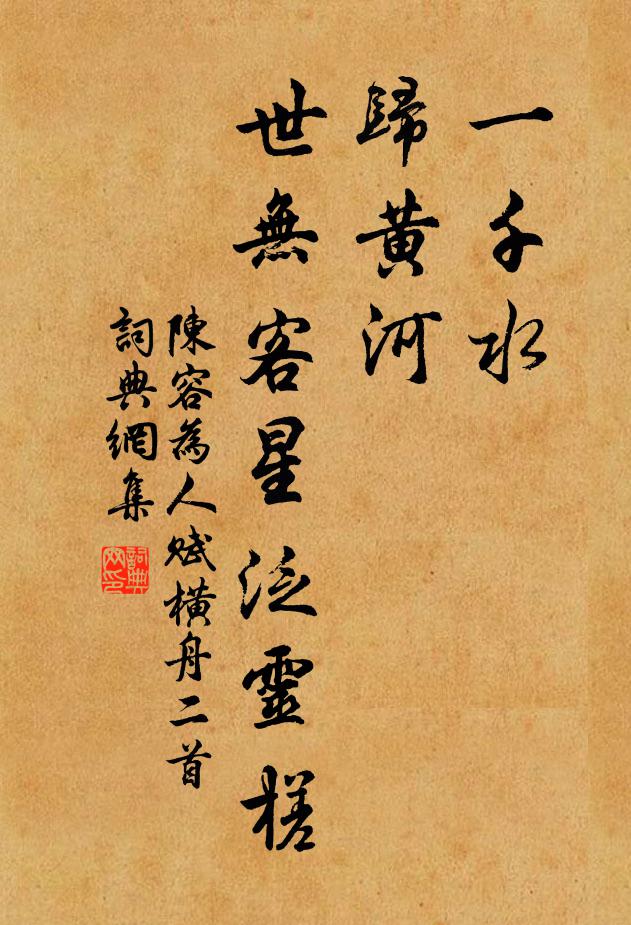 一千水
歸黃河
世無客星泛靈槎
陳容為人賦橫舟二首
詞典網集
詞典網印